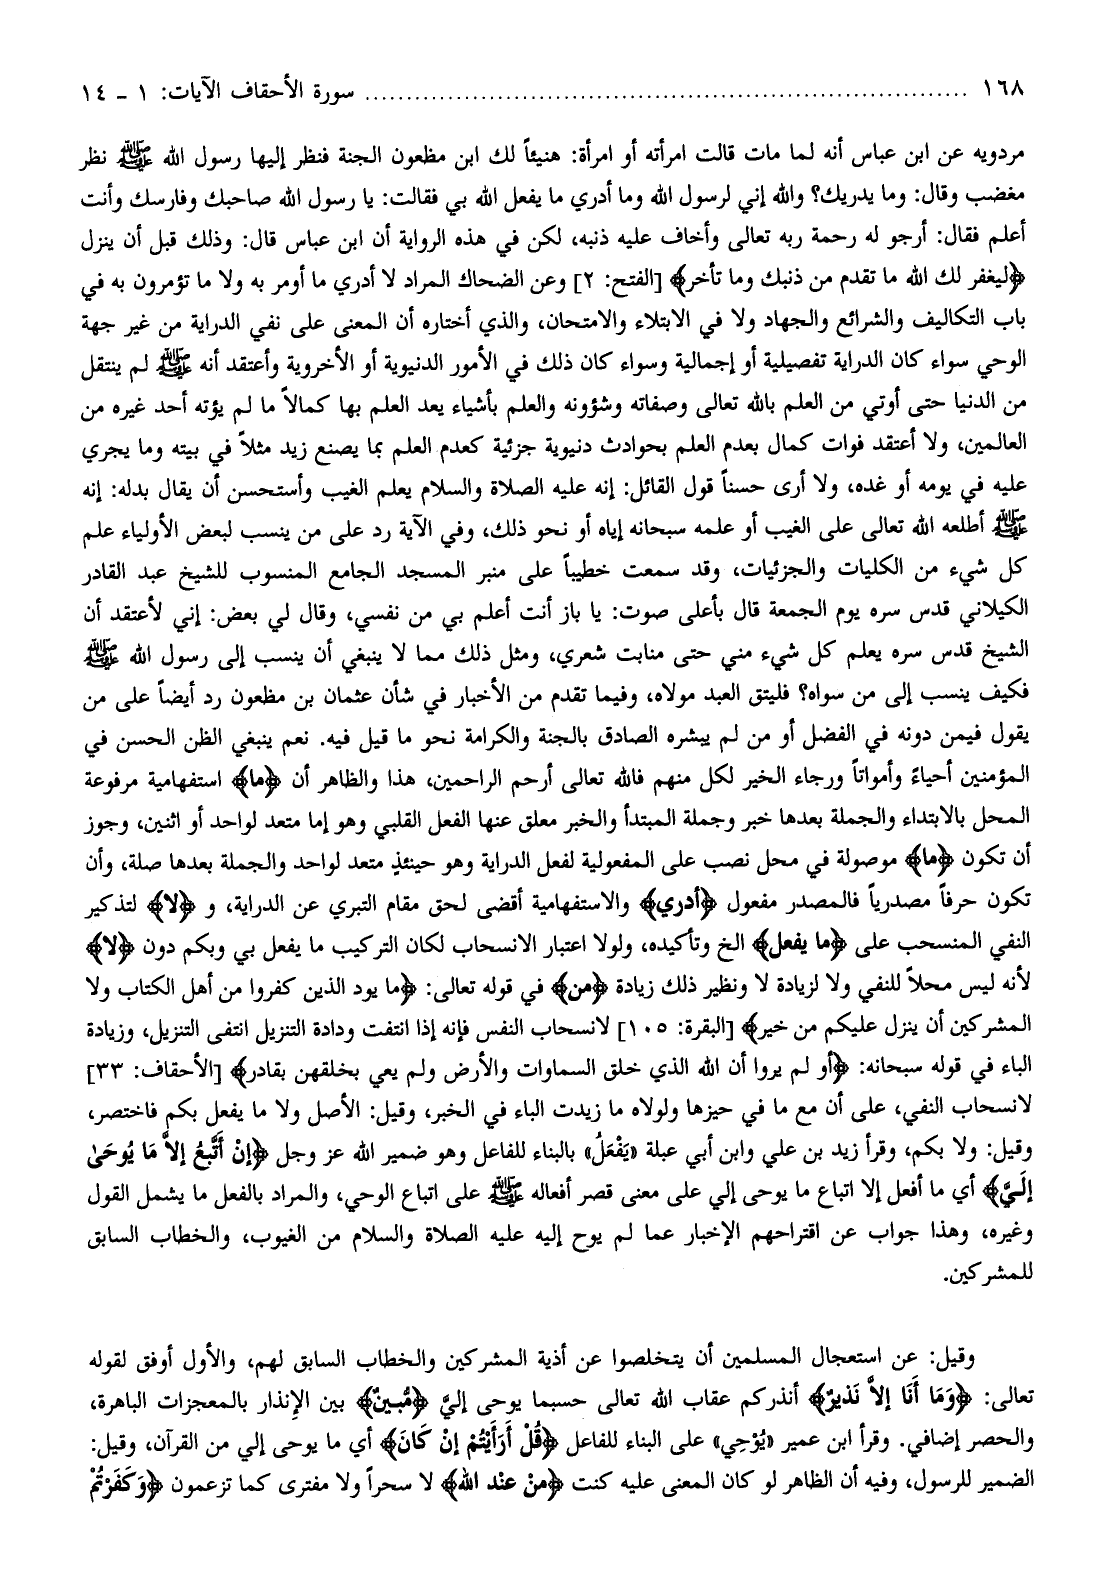 ١٦٨ ........................................................................ سورة الأحقاف الآيات: ١ - ١٤
مردويه عن ابن عباس أنه لما مات قالت امرأته أو امرأة: هنيئاً لك ابن مظعون الجنة فنظر إليها رسول الله ﷺ نظر
مغضب وقال: وما يدريك؟ والله إني لرسول الله وما أدري ما يفعل الله بي فقالت: يا رسول الله صاحبك وفارسك وأنت
أعلم فقال: أرجو له رحمة ربه تعالى وأخاف عليه ذنبه، لكن في هذه الرواية أن ابن عباس قال: وذلك قبل أن ينزل
﴿ليغفر لك الله ما تقدم من ذنبك وما تأخر﴾ [الفتح: ٢] وعن الضحاك المراد لا أدري ما أومر به ولا ما تؤمرون به في
باب التكاليف والشرائع والجهاد ولا في الابتلاء والامتحان، والذي أختاره أن المعنى على نفي الدراية من غير جهة
الوحي سواء كان الدراية تفصيلية أو إجمالية وسواء كان ذلك في الأمور الدنيوية أو الأخروية وأعتقد أنه ﷺ لم ينتقل
من الدنيا حتى أوتي من العلم بالله تعالى وصفاته وشؤونه والعلم بأشياء يعد العلم بها كمالاً ما لم يؤته أحد غيره من
العالمين، ولا أعتقد فوات كمال بعدم العلم بحوادث دنيوية جزئية كعدم العلم بما يصنع زيد مثلاً في بيته وما يجري
عليه في يومه أو غده، ولا أرى حسناً قول القائل: إنه عليه الصلاة والسلام يعلم الغيب وأستحسن أن يقال بدله: إنه
ﷺ أطلعه الله تعالى على الغيب أو علمه سبحانه إياه أو نحو ذلك، وفي الآية رد على من ينسب لبعض الأولياء علم
كل شيء من الكليات والجزئيات، وقد سمعت خطيباً على منبر المسجد الجامع المنسوب للشيخ عبد القادر
الكيلاني قدس سره يوم الجمعة قال بأعلى صوت: يا باز أنت أعلم بي من نفسي، وقال لي بعض: إني لأعتقد أن
الشيخ قدس سره يعلم كل شيء مني حتى منابت شعري، ومثل ذلك مما لا ينبغي أن ينسب إلى رسول الله ﷺ
فكيف ينسب إلى من سواه؟ فليتق العبد مولاه، وفيما تقدم من الأخبار في شأن عثمان بن مظعون رد أيضاً على من
يقول فيمن دونه في الفضل أو من لم يبشره الصادق بالجنة والكرامة نحو ما قيل فيه. نعم ينبغي الظن الحسن في
المؤمنين أحياءً وأمواتاً ورجاء الخير لكل منهم فالله تعالى أرحم الراحمين، هذا والظاهر أن ﴿ما﴾ استفهامية مرفوعة
المحل بالابتداء والجملة بعدها خبر وجملة المبتدأ والخبر معلق عنها الفعل القلبي وهو إما متعد لواحد أو اثنين، وجوز
أن تكون ﴿ما﴾ موصولة في محل نصب على المفعولية لفعل الدراية وهو حينئذٍ متعد لواحد والجملة بعدها صلة، وأن
تكون حرفاً مصدرياً فالمصدر مفعول ﴿أدري﴾ والاستفهامية أقضى لحق مقام التبري عن الدراية، و ﴿لا﴾ لتذكير
النفي المنسحب على ﴿ما يفعل﴾ الخ وتأكيده، ولولا اعتبار الانسحاب لكان التركيب ما يفعل بي وبكم دون ﴿لا﴾
لأنه ليس محلاً للنفي ولا لزيادة لا ونظير ذلك زيادة ﴿من﴾ في قوله تعالى: ﴿ما يود الذين كفروا من أهل الكتاب ولا
المشركين أن ينزل عليكم من خير﴾ [البقرة: ١٠٥] لانسحاب النفس فإنه إذا انتفت ودادة التنزيل انتفى التنزيل، وزيادة
الباء في قوله سبحانه: ﴿أو لم يروا أن الله الذي خلق السماوات والأرض ولم يعي بخلقهن بقادر﴾ [الأحقاف: ٣٣]
لانسحاب النفي، على أن مع ما في حيزها ولولاه ما زيدت الباء في الخبر، وقيل: الأصل ولا ما يفعل بكم فاختصر،
وقيل: ولا بكم، وقرأ زيد بن علي وابن أبي عبلة «يَفْعَلُ» بالبناء للفاعل وهو ضمير الله عز وجل ﴿إِنْ أَتَّبِعُ إلاَّ مَا يُوحَىٰ
إلَيَّ﴾ أي ما أفعل إلا اتباع ما يوحى إلي على معنى قصر أفعاله ﷺ على اتباع الوحي، والمراد بالفعل ما يشمل القول
وغيره، وهذا جواب عن اقتراحهم الإخبار عما لم يوح إليه عليه الصلاة والسلام من الغيوب، والخطاب السابق
للمشركين.
وقيل: عن استعجال المسلمين أن يتخلصوا عن أذية المشركين والخطاب السابق لهم، والأول أوفق لقوله
تعالى: ﴿وَمَا أَنَا إلاَّ نَذيرٌ﴾ أنذركم عقاب الله تعالى حسبما يوحى إليَّ ﴿مُبينٌ﴾ بين الإِنذار بالمعجزات الباهرة،
والحصر إضافي. وقرأ ابن عمير «يُوْحِي» على البناء للفاعل ﴿قُلْ أَرَأَيْتُمْ إنْ كَانَ﴾ أي ما يوحى إلي من القرآن، وقيل:
الضمير للرسول، وفيه أن الظاهر لو كان المعنى عليه كنت ﴿منْ عنْد الله﴾ لا سحراً ولا مفترى كما تزعمون ﴿وَكَفَرْتُمْ